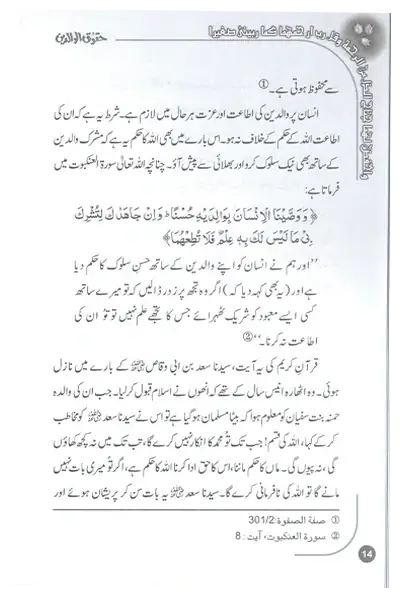 حقوق الوالدین
وقل رب ارحمهما كما ربيني صغيرا
سے محفوظ ہوتی ہے۔①
انسان پر والدین کی اطاعت اور عزت ہر حال میں لازم ہے۔ شرط یہ ہے کہ ان کی
اطاعت اللہ کے حکم کے خلاف نہ ہو۔ اس بارے میں بھی اللہ کا حکم یہ ہے کہ مشرک والدین
کے ساتھ بھی نیک سلوک کرو اور بھلائی سے پیش آؤ۔ چنانچہ اللہ تعالیٰ سورۃ العنکبوت میں
فرماتا ہے:
﴿ وَوَصَّيْنَا الْاِنْسَانَ بِوَالِدَيْهِ حُسْنًا وَاِنْ جَاهَدٰكَ لِتُشْرِكَ
بِيْ مَا لَيْسَ لَكَ بِهٖ عِلْمٌ فَلَا تُطِعْهُمَا﴾
”اور ہم نے انسان کو اپنے والدین کے ساتھ حسنِ سلوک کا حکم دیا
ہے اور (یہ بھی کہہ دیا کہ) اگر وہ تجھ پر زور ڈالیں کہ تو میرے ساتھ
کسی ایسے معبود کو شریک ٹھہرائے جس کا تجھے علم نہیں تو تُو ان کی
اطاعت نہ کرنا۔“②
قرآنِ کریم کی یہ آیت، سیدنا سعد بن ابی وقاص ﷜ کے بارے میں نازل
ہوئی۔ وہ اٹھارہ انیس سال کے تھے کہ انھوں نے اسلام قبول کر لیا۔ جب ان کی والدہ
حمنہ بنت سفیان کو معلوم ہوا کہ بیٹا مسلمان ہو گیا ہے تو اس نے سیدنا سعد ﷜ کو مخاطب
کر کے کہا، اللہ کی قسم! جب تک تُو محمد کا انکار نہیں کرے گا، تب تک میں نہ کچھ کھاؤں
گی، نہ پیوں گی۔ ماں کا حکم ماننا، اس کا حق ادا کرنا اللہ کا حکم ہے، اگر تُو میری بات نہیں
مانے گا تو اللہ کی نافرمانی کرے گا۔ سیدنا سعد ﷜ یہ بات سن کر پریشان ہوئے اور
① صفة الصفوة:301/2
② سورة العنكبوت، آیت : 8
14